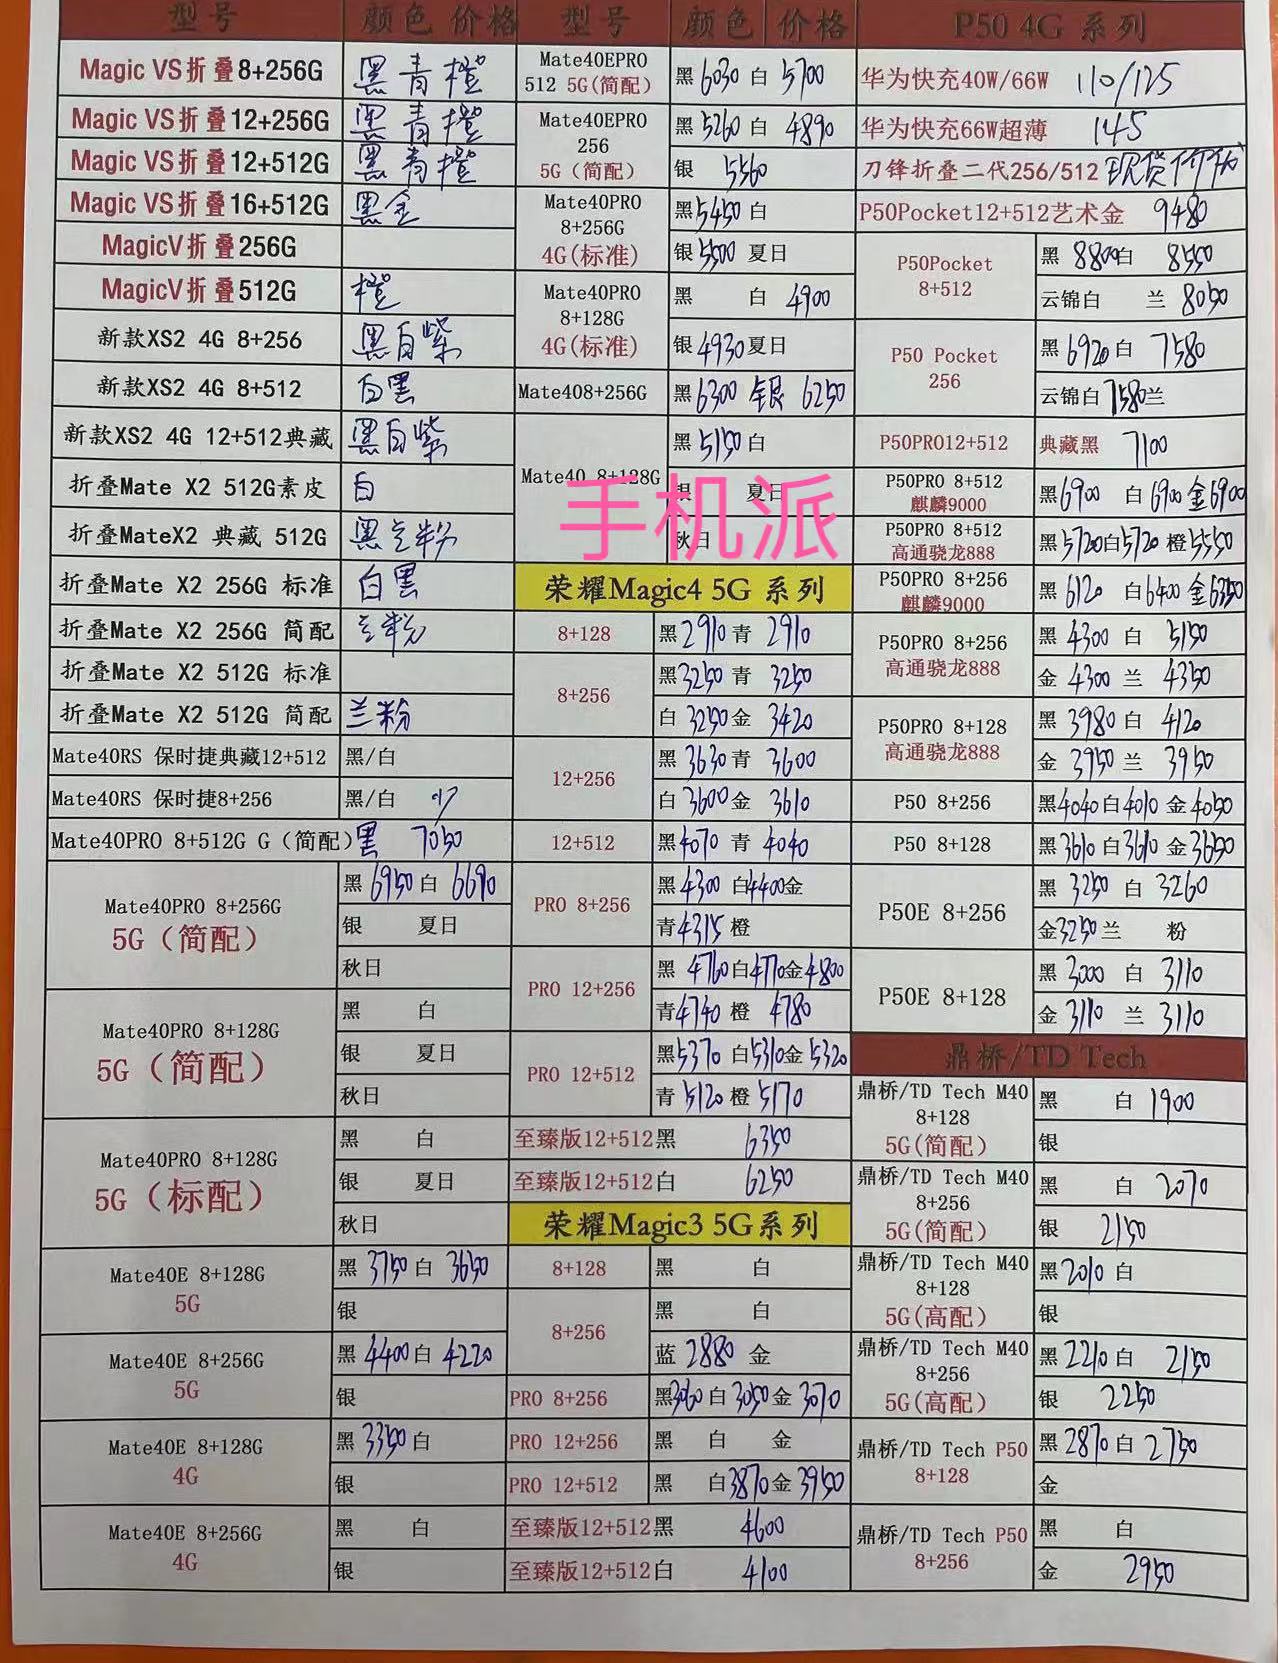 型号 颜色 价格
Magic VS折叠8+256G 黑青橙
Magic VS折叠12+256G 黑青橙
Magic VS折叠12+512G 黑青橙
Magic VS折叠16+512G 黑金
MagicV折叠256G
MagicV折叠512G 橙
新款XS2 4G 8+256 黑白紫
新款XS2 4G 8+512 白黑
新款XS2 4G 12+512典藏 黑白紫
折叠Mate X2 512G素皮 白
折叠MateX2 典藏 512G 黑兰粉
折叠Mate X2 256G 标准 白黑
折叠Mate X2 256G 简配 兰粉
折叠Mate X2 512G 标准
折叠Mate X2 512G 简配 兰粉
Mate40RS 保时捷典藏12+512 黑/白
Mate40RS 保时捷8+256 黑/白
Mate40PRO 8+512G G（简配）黑 7050
Mate40PRO 8+256G
5G（简配）
黑 6950 白 6690
银 夏日
秋日
Mate40PRO 8+128G
5G（简配）
黑 白
银 夏日
秋日
Mate40PRO 8+128G
5G（标配）
黑 白
银 夏日
秋日
Mate40E 8+128G
5G
黑 3750 白 3650
银
Mate40E 8+256G
5G
黑 4400 白 4220
银
Mate40E 8+128G
4G
黑 3350 白
银
Mate40E 8+256G
4G
黑 白
银
型号 颜色 价格
Mate40EPRO
512 5G(简配)
黑 6030 白 5700
Mate40EPRO
256
5G（简配）
黑 5260 白 4890
银 5560
Mate40PRO
8+256G
4G(标准)
黑 5450 白
银 5500 夏日
Mate40PRO
8+128G
4G(标准)
黑 白 4900
银 4930 夏日
Mate408+256G 黑 6300 银 6250
Mate40 8+128G
黑 5150 白
银 夏日
秋日
手机派
荣耀Magic4 5G 系列
8+128 黑 2910 青 2910
8+256
黑 3250 青 3250
白 3250 金 3420
12+256
黑 3630 青 3600
白 3600 金 3610
12+512 黑 4070 青 4040
PRO 8+256
黑 4300 白 4400 金
青 4315 橙
PRO 12+256
黑 4760 白 4770 金 4800
青 4740 橙 4780
PRO 12+512
黑 5370 白 5310 金 5320
青 5120 橙 5170
至臻版12+512黑 6350
至臻版12+512白 6250
荣耀Magic3 5G系列
8+128 黑 白
8+256
黑 白
蓝 2880 金
PRO 8+256 黑 3060 白 3050 金 3070
PRO 12+256 黑 白 金
PRO 12+512 黑 白 3870 金 3950
至臻版12+512黑 4600
至臻版12+512白 4100
P50 4G 系列
华为快充40W/66W 110/125
华为快充66W超薄 145
刀锋折叠二代256/512 现货
P50Pocket12+512艺术金 9480
P50Pocket
8+512
黑 8800 白 8550
云锦白 兰 8050
P50 Pocket
256
黑 6920 白 7580
云锦白 7580 兰
P50PRO12+512 典藏黑 7100
P50PRO 8+512
麒麟9000
黑 6900 白 6900 金 6900
P50PRO 8+512
高通骁龙888
黑 5720 白 5720 橙 5550
P50PRO 8+256
麒麟9000
黑 6120 白 6400 金 6350
P50PRO 8+256
高通骁龙888
黑 4300 白 5150
金 4300 兰 4350
P50PRO 8+128
高通骁龙888
黑 3980 白 4120
金 3950 兰 3950
P50 8+256 黑 4040 白 4010 金 4050
P50 8+128 黑 3610 白 3610 金 3650
P50E 8+256
黑 3250 白 3260
金 3250 兰 粉
P50E 8+128
黑 3000 白 3110
金 3110 兰 3110
鼎桥/TD Tech
鼎桥/TD Tech M40
8+128
5G(简配)
黑 白 1900
银
鼎桥/TD Tech M40
8+256
5G(简配)
黑 白 2070
银 2150
鼎桥/TD Tech M40
8+128
5G(高配)
黑 2010 白
银
鼎桥/TD Tech M40
8+256
5G(高配)
黑 2210 白 2150
银 2250
鼎桥/TD Tech P50
8+128
黑 2870 白 2750
金
鼎桥/TD Tech P50
8+256
黑 白
金 2950